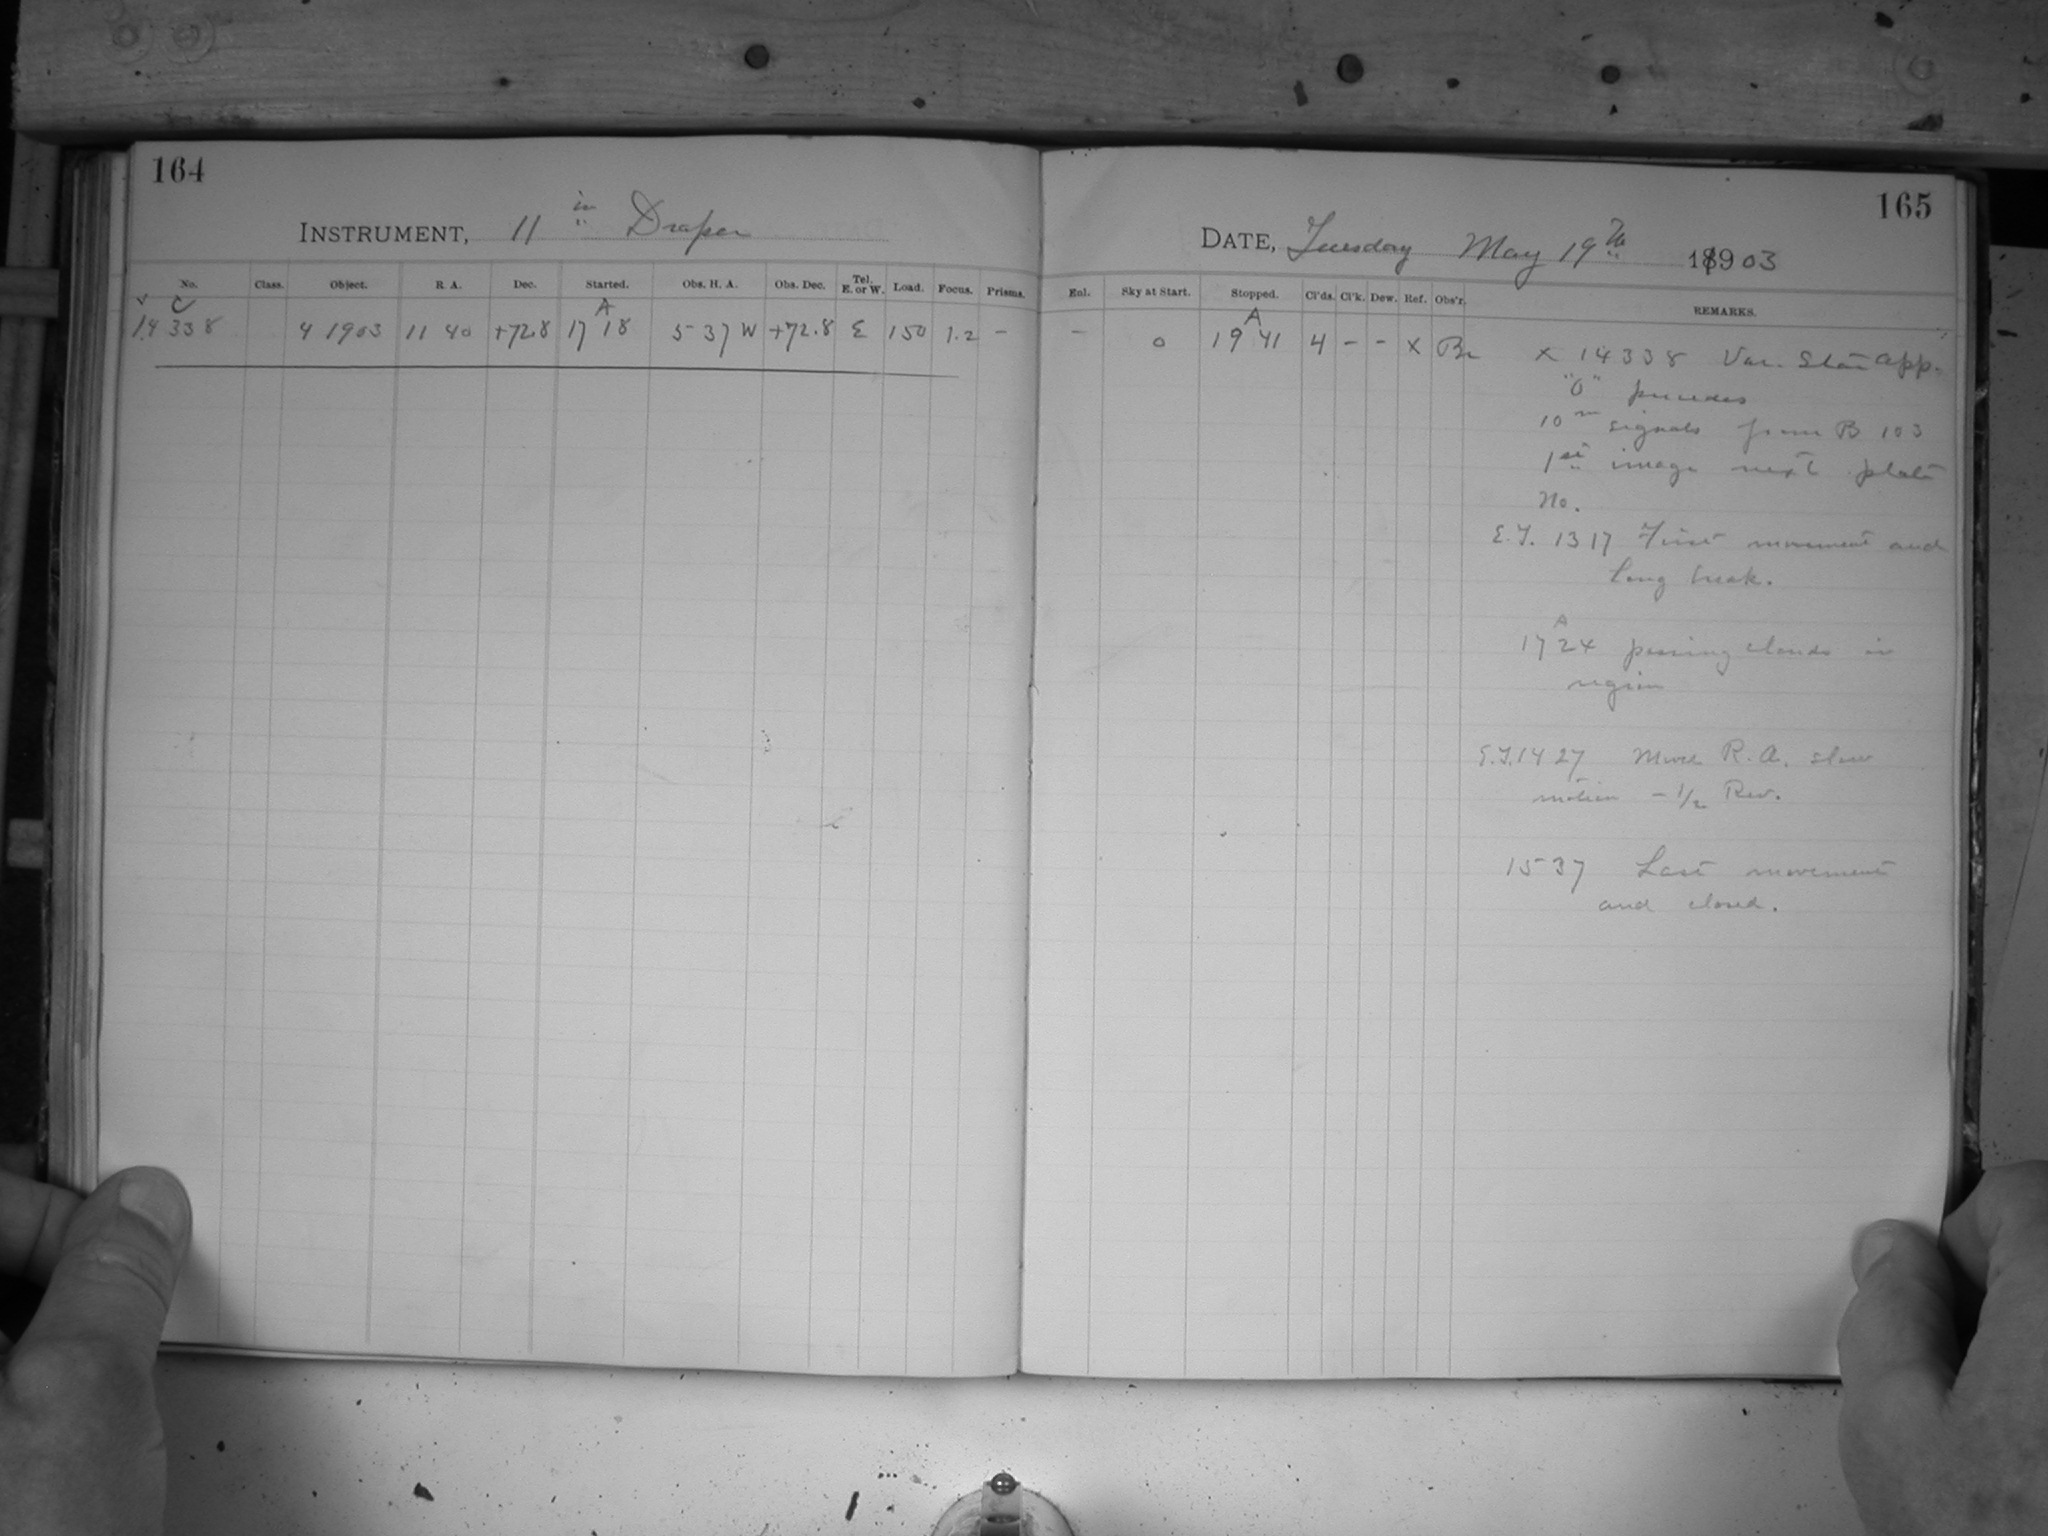 164
INSTRUMENT, 11 in Draper
No. Class. Object. R. A. Dec. Started. Obs. H. A. Obs. Dec. Tel. E. or W. Load. Focus. Prisms.
C A
14338 4 1903 11 40 +72.8 17 18 5 37 W +72.8 E 150 1.2 –
165
DATE, Tuesday May 19th 1903
Enl. Sky at Start. Stopped. Cl'ds. Cl'k. Dew. Ref. Obs'r. REMARKS.
A
– 0 19 41 4 – – X Br
X 14338 Var. Star App.
"O" precedes
10 m signals from B 103
1st image next plate
No.
E.T. 13 17 First movement and
long break.
A
17 24 passing clouds in
region
E.T. 14 27 Move R.A. slow
motion – 1/2 Rev.
15 37 Last movement
and closed.